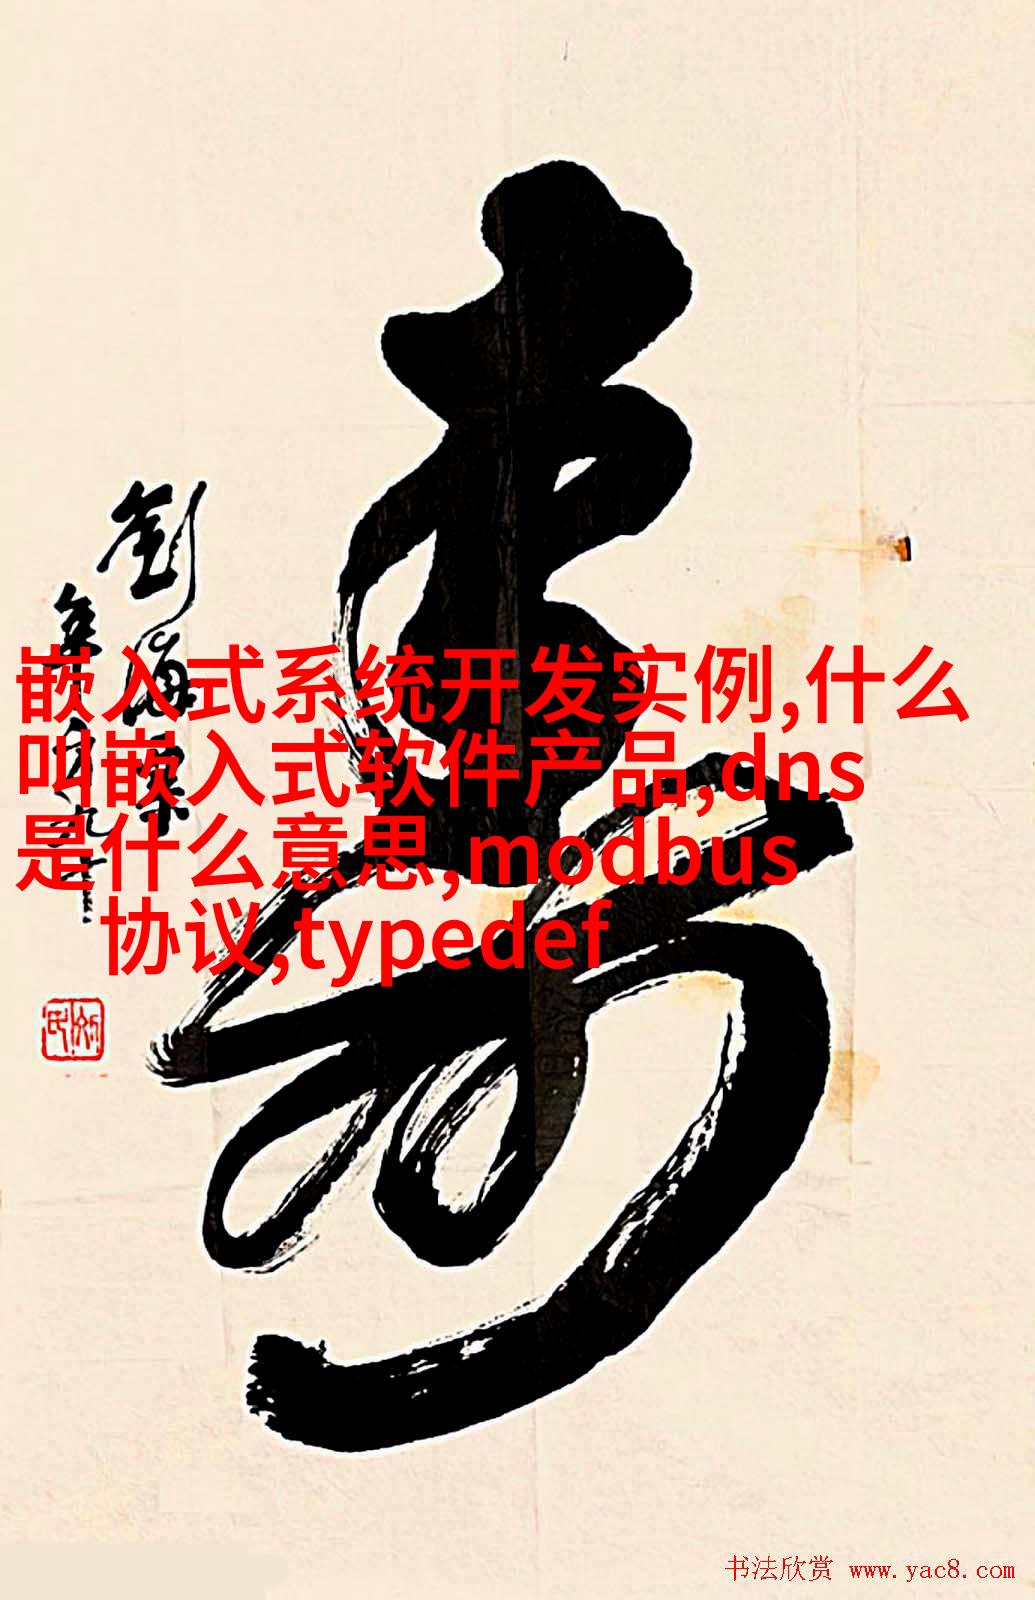 寿
劉海粟
年方九十
嵌入式系统开发实例,什么
叫嵌入式软件产品,dns
是什么意思,modbus
协议,typedef
书法欣赏 www.yac8.com